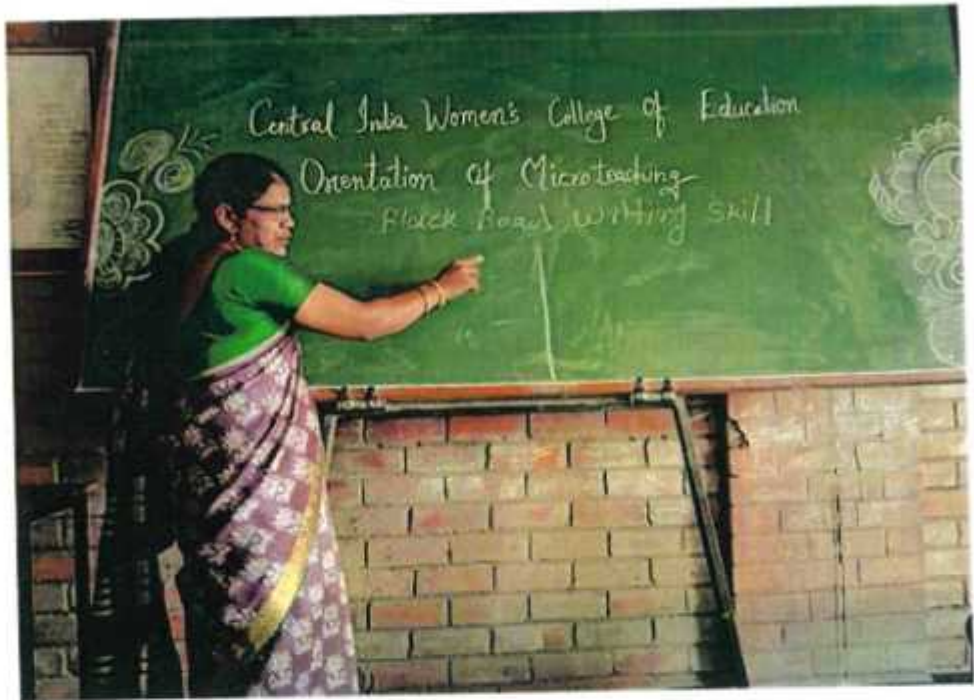 Central India Women's College of Education
Orientation of Microteaching
Black Board Writting Skill